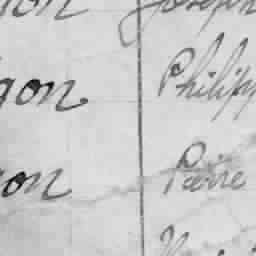 on Joseph
gon Philipp
on Pierre